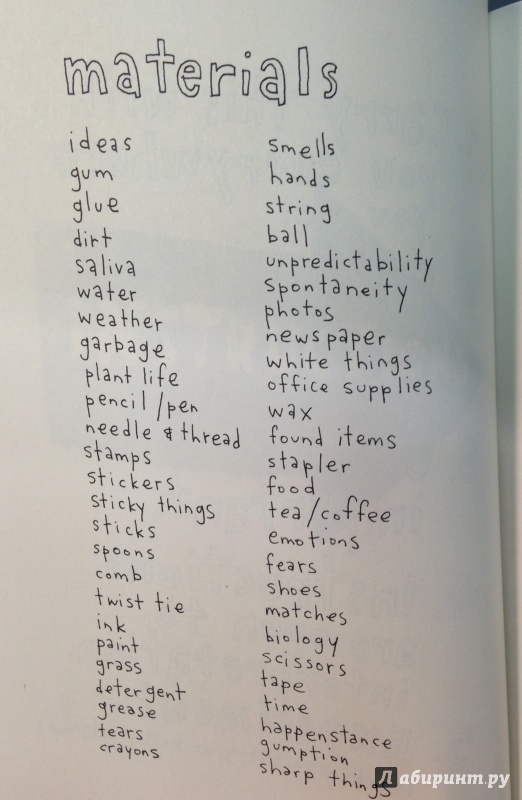 materials
ideas
gum
glue
dirt
saliva
water
weather
garbage
plant life
pencil/pen
needle & thread
stamps
stickers
sticky things
sticks
spoons
comb
twist tie
ink
paint
grass
detergent
grease
tears
crayons
smells
hands
string
ball
unpredictability
spontaneity
photos
newspaper
white things
office supplies
wax
found items
stapler
food
tea/coffee
emotions
fears
shoes
matches
biology
scissors
tape
time
happenstance
gumption
sharp things
Лабиринт.ру